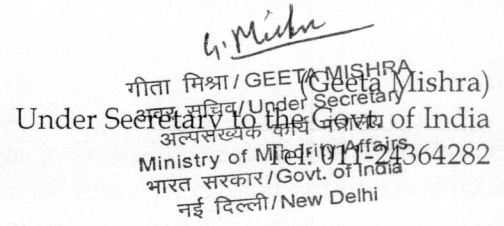 G. Mishra
(Geeta Mishra)
Under Secretary to the Govt. of India
Tel: 011-24364282
गीता मिश्रा / GEETA MISHRA
अवर सचिव/Under Secretary
अल्पसंख्यक कार्य मंत्रालय
Ministry of Minority Affairs
भारत सरकार/Govt. of India
नई दिल्ली/New Delhi